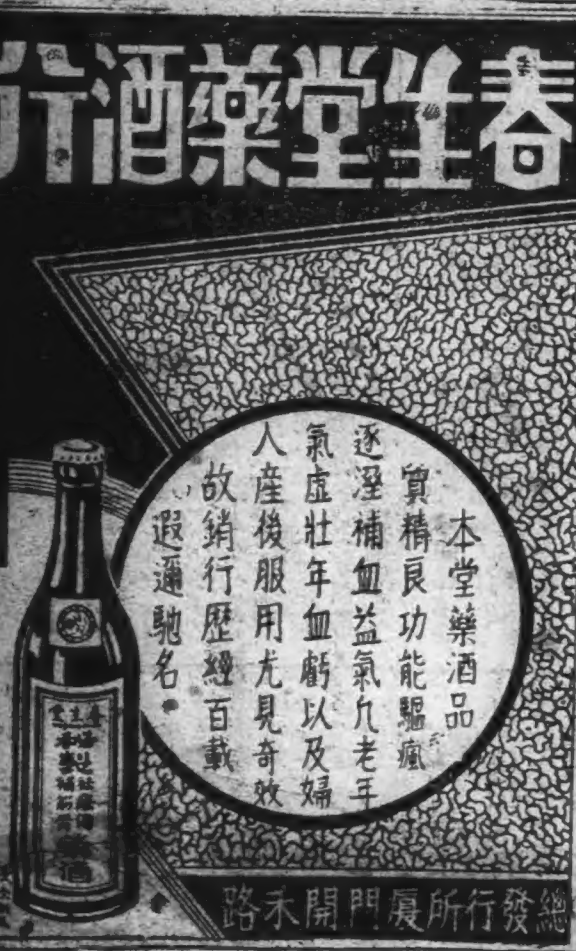 春生堂藥酒行
本堂藥酒品
質精良功能驅瘋
逐溼補血益氣凡老年
氣虛壯年血虧以及婦
人産後服用尤見奇效
故銷行歷經百載
遐邇馳名。
春生堂
總發行所廈門開禾路